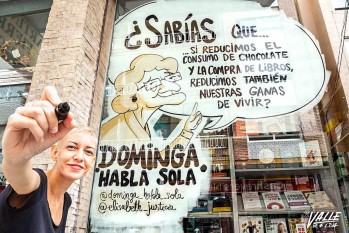 ¿SABÍAS QUE...
...SI REDUCIMOS EL
CONSUMO DE CHOCOLATE
Y LA COMPRA DE LIBROS,
REDUCIMOS TAMBIÉN
NUESTRAS GANAS
DE VIVIR?
DOMINGA
HABLA SOLA.
@dominga_habla_sola
@elisabeth_justicia
VALLE